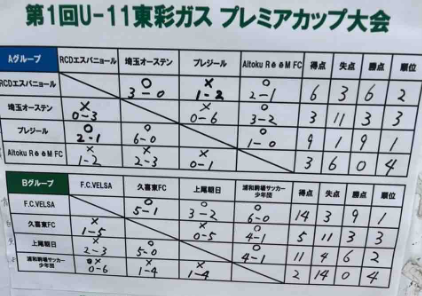 第1回U-11東彩ガス プレミアカップ大会
Aグループ RCDエスパニョール 埼玉オーステン プレジール Aitoku R●●M FC 得点 失点 勝点 順位
RCDエスパニョール ○ 3-0 × 1-2 ○ 2-1 6 3 6 2
埼玉オーステン × 0-3 × 0-6 ○ 3-2 3 11 3 3
プレジール ○ 2-1 ○ 6-0 ○ 1-0 9 1 9 1
Aitoku R●●M FC × 1-2 × 2-3 × 0-1 3 6 0 4
Bグループ F.C.VELSA 久喜東FC 上尾朝日 浦和駒場サッカー少年団 得点 失点 勝点 順位
F.C.VELSA ○ 5-1 ○ 3-2 ○ 6-0 14 3 9 1
久喜東FC × 1-5 × 0-5 ○ 4-1 5 11 3 3
上尾朝日 × 2-3 ○ 5-0 ○ 4-1 11 4 6 2
浦和駒場サッカー少年団 × 0-6 × 1-4 × 1-4 2 14 0 4